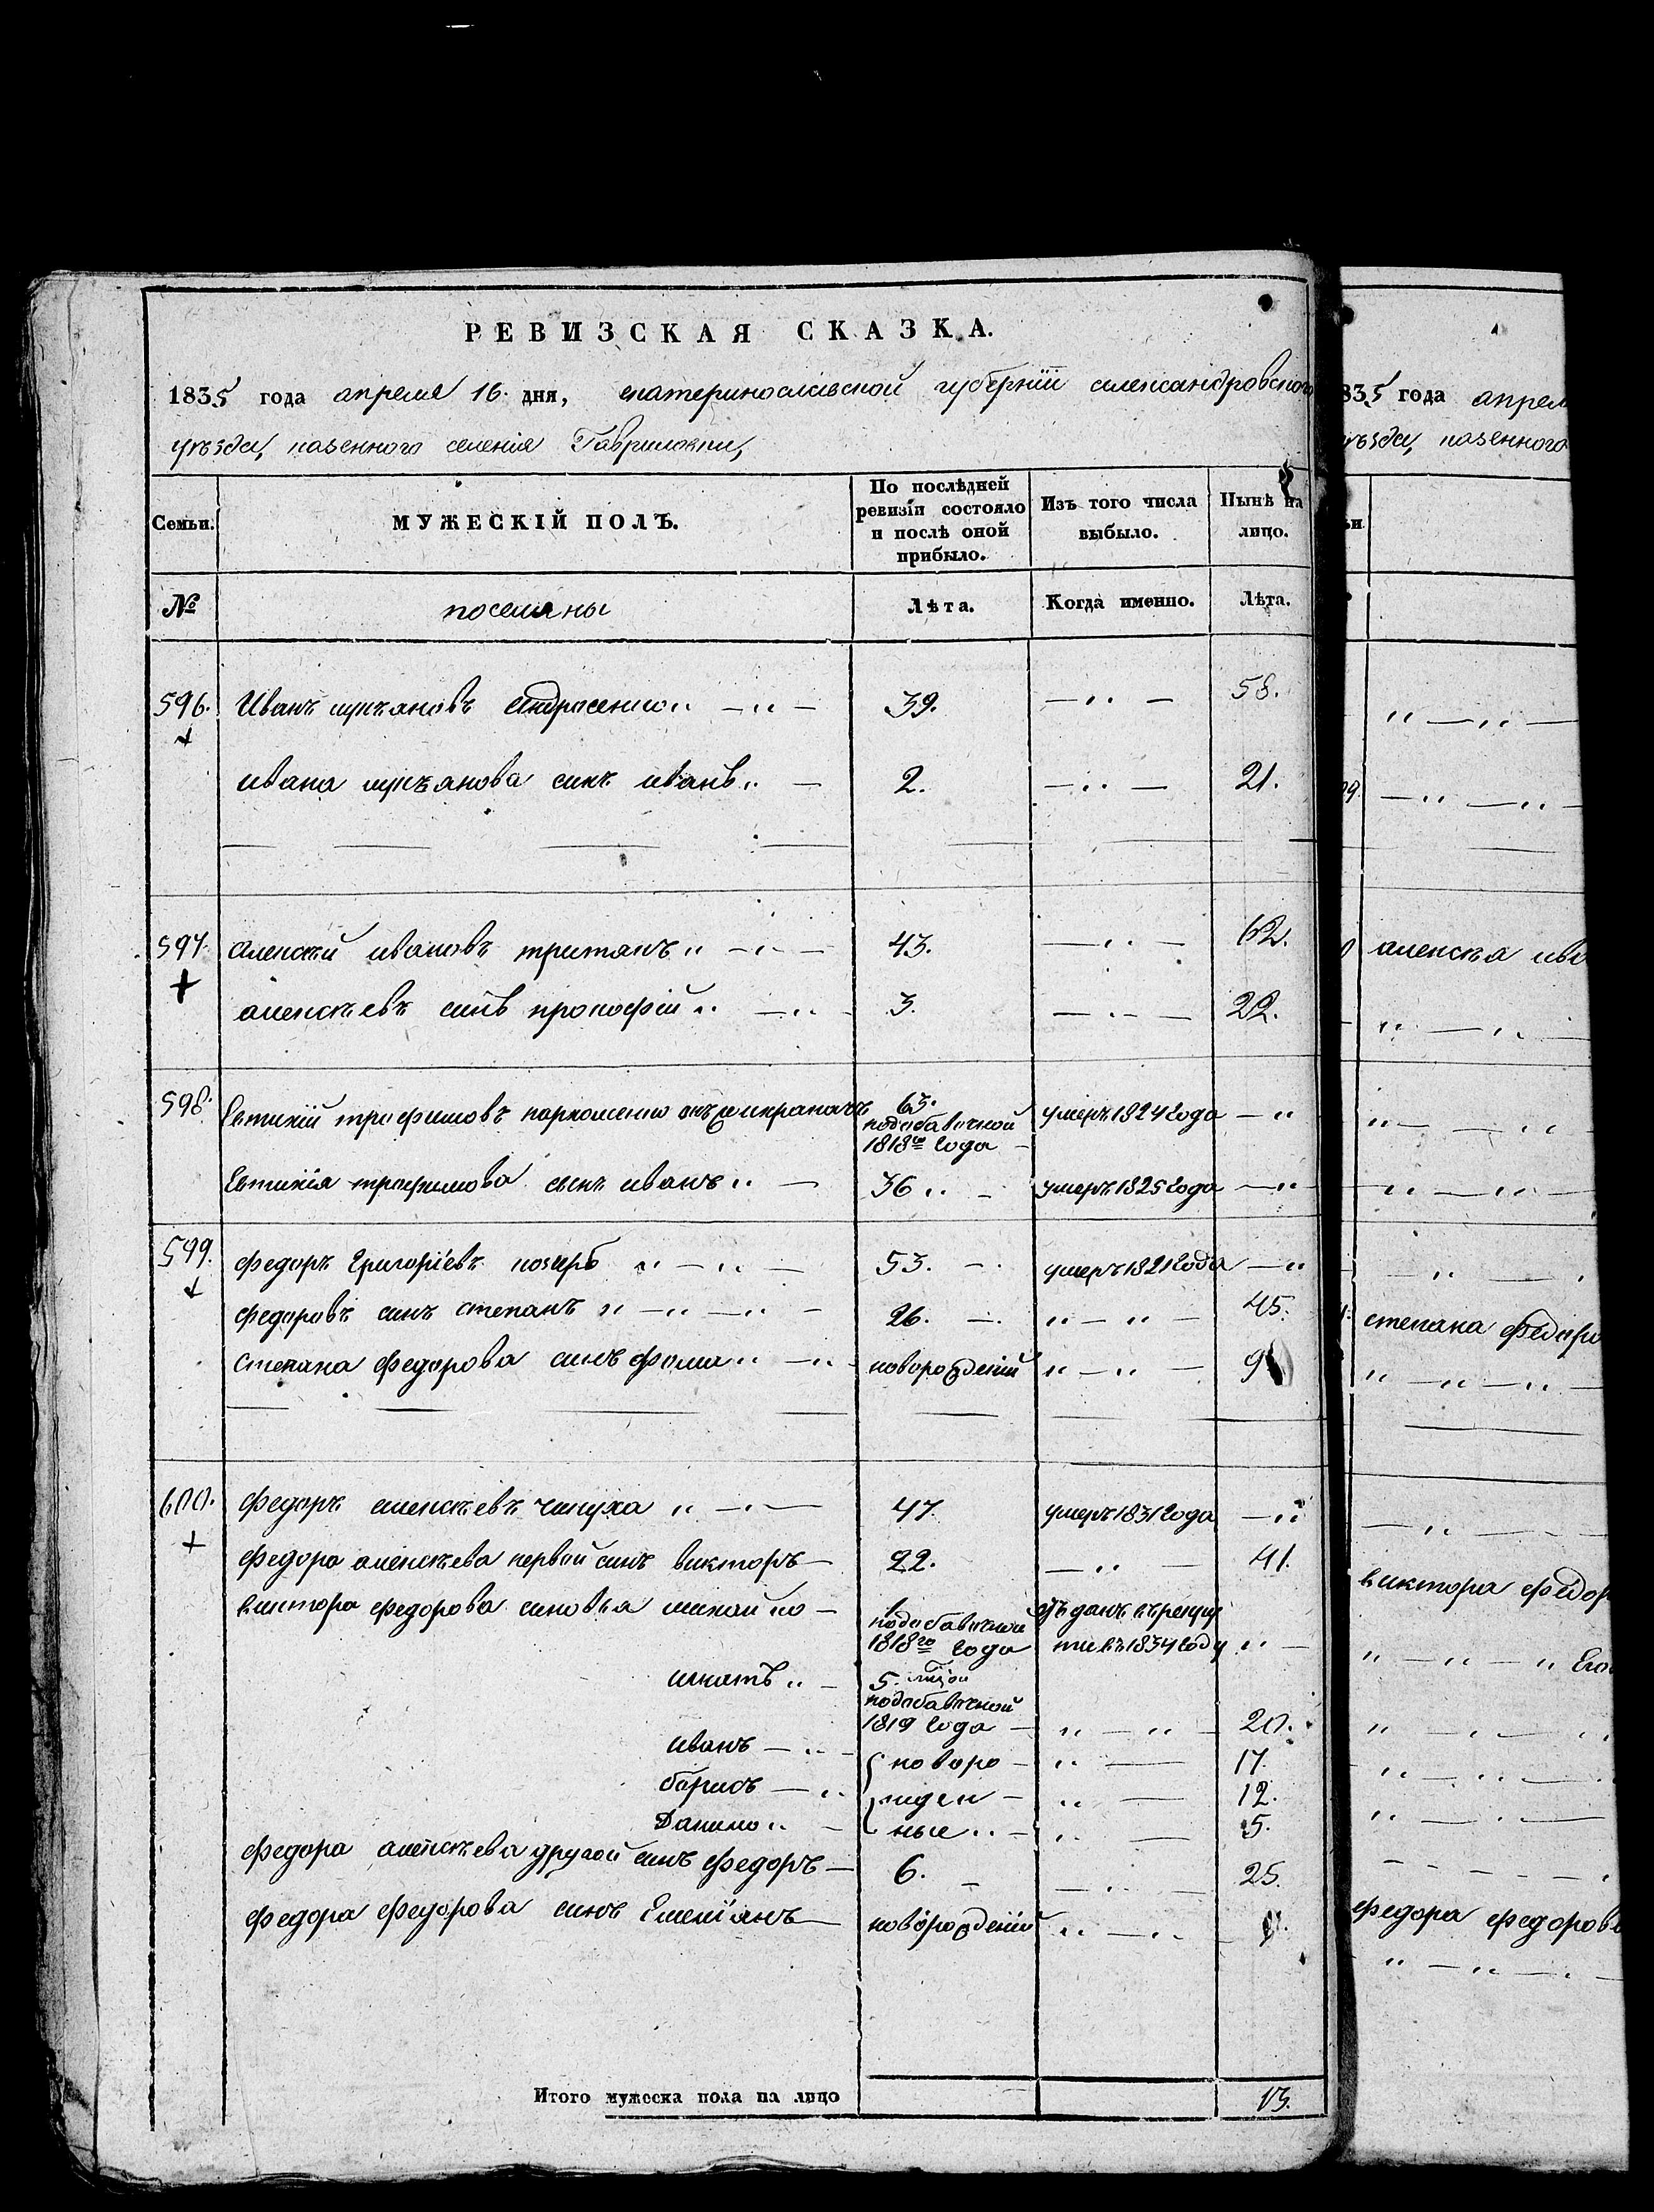 РЕВИЗСКАЯ СКАЗКА.
1835 года апреля 16. дня, екатеринославской губернїи александровского
уѣзда, казенного селенія Гавриловки,
Семьи. МУЖЕСКІЙ ПОЛЪ. По послѣдней ревизіи состояло и послѣ оной прибыло. Изъ того числа выбыло. Нынѣ на лицо.
№ поселяны Лѣта. Когда именно. Лѣта.
596. Иванъ лукъяновъ Андросенко 39. 58.
ивана лукъянова синъ иванъ 2. 21.
597. алексѣй ивановъ тритякъ 43. 62.
алексѣевъ синъ прокофій 3. 22.
598. Евтихій трофимовъ пархоменко онъ 63. умеръ 1824 года
подобавочной
1818го года
Евтихія трофимова сынъ иванъ 36 умеръ 1825 года
599. федоръ Григоріевъ козирь 53. умеръ 1821 года
федоровъ синъ степанъ 26. 45.
степана федорова синъ фома новорожденій 9
600. федоръ алексѣевъ чепуха 47. умеръ 1831 года
федора алексѣева первой синъ викторъ 22. 41.
виктора федорова синовья михайло 1 отъданъ въ рекру
подобавочной
1818го года ти въ 1834 году
игнатъ 5.
подобавочной
1819 года 20.
иванъ новоро 17.
борисъ жден 12.
Данило ные 5.
федора алексѣева другой синъ федоръ 6. 25.
федора федорова синъ Емеліянъ новорожденій
Итого мужеска пола на лицо 13.
835 года апрел
уѣзда, казенного
алексѣя ива
степана федоро
виктора федор
федора федорова